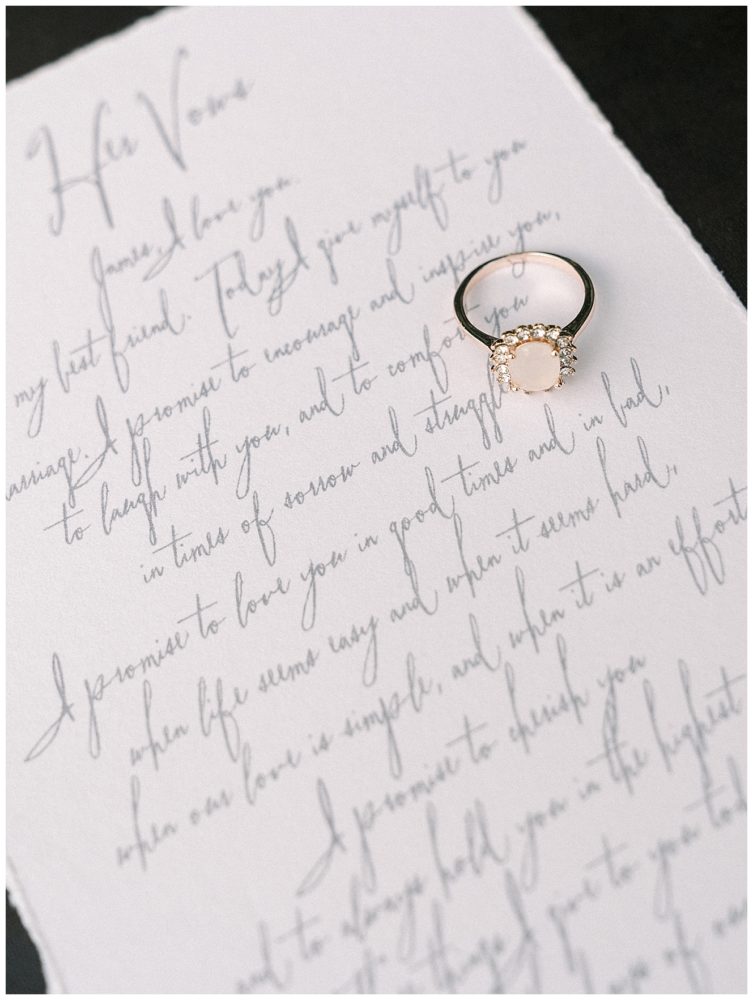 Her Vows
James, I love you.
my best friend. Today I give myself to you
marriage. I promise to encourage and inspire you,
to laugh with you, and to comfort you
in times of sorrow and struggle
I promise to love you in good times and in bad,
when life seems easy and when it seems hard,
when our love is simple, and when it is an effort
I promise to cherish you
and to always hold you in the highest
things I give to you